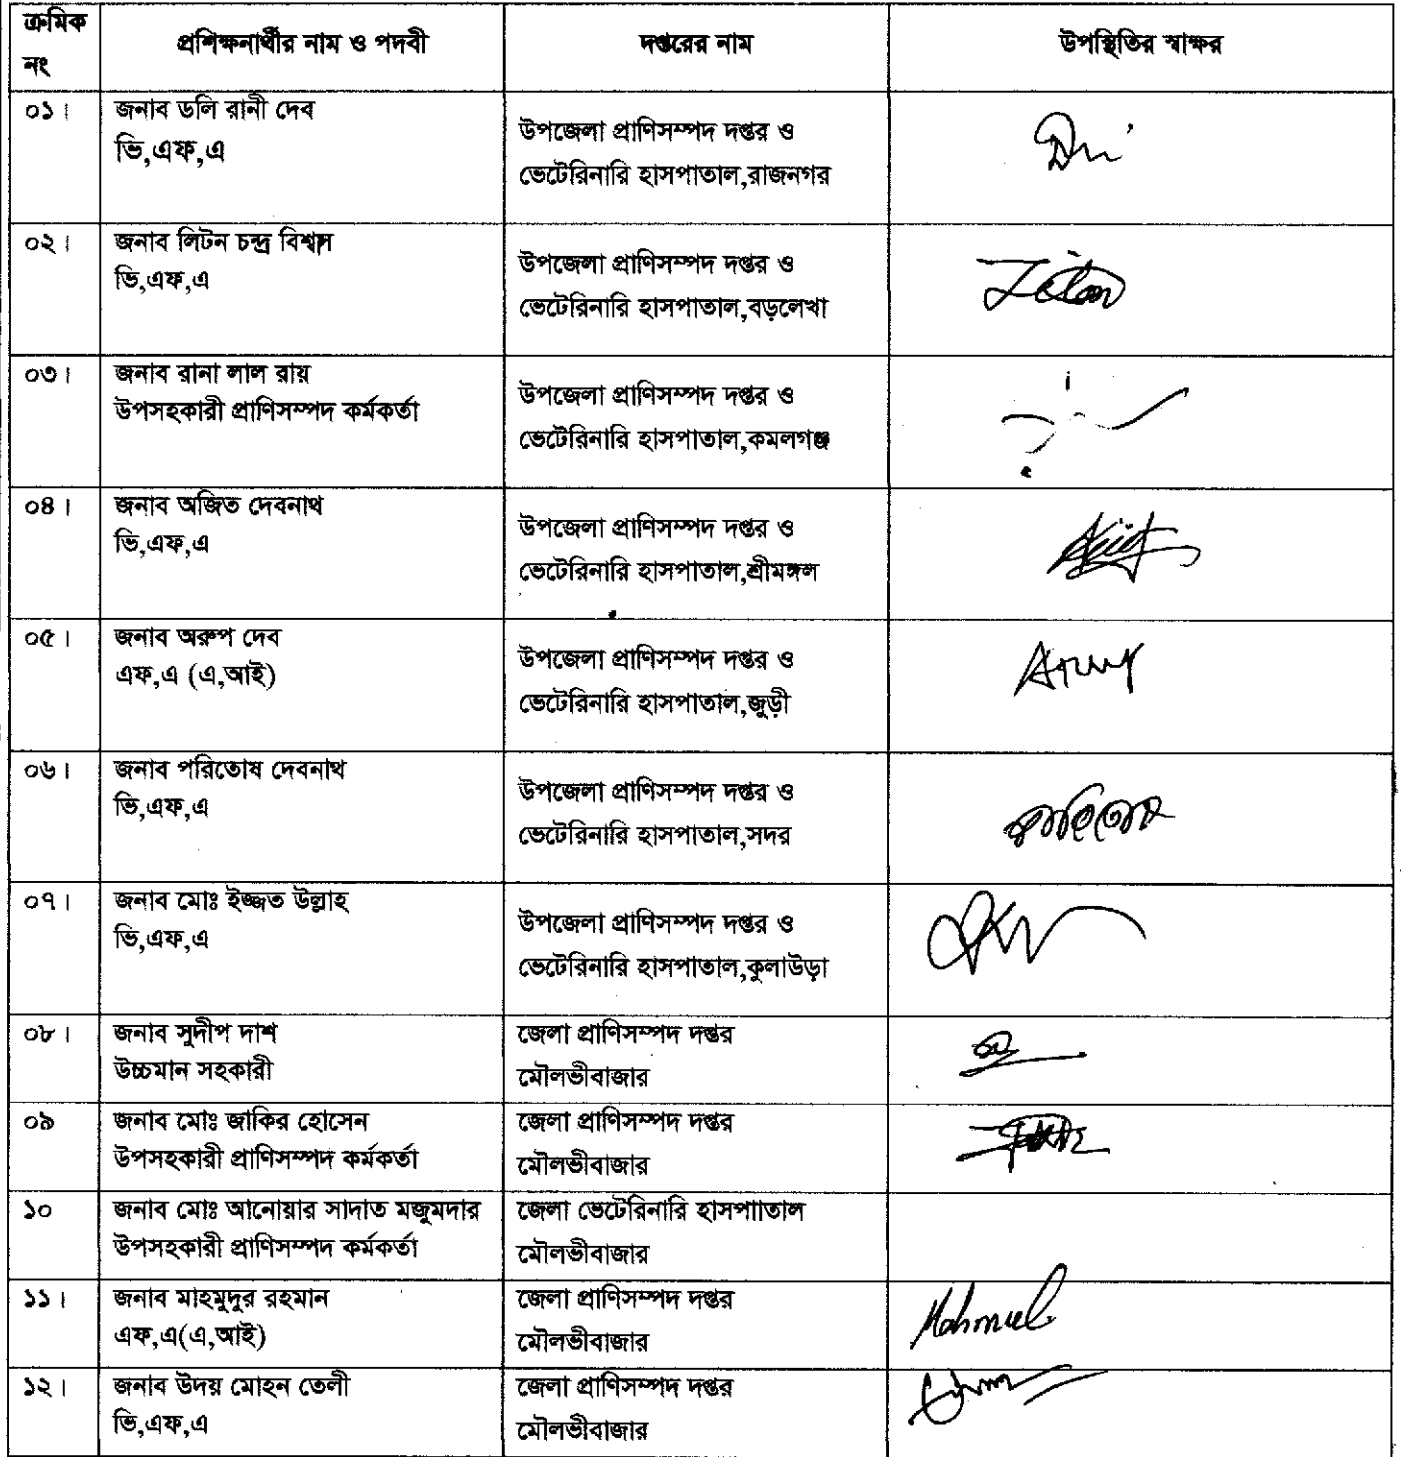 ক্রমিক নং
প্রশিক্ষনার্থীর নাম ও পদবী
দপ্তরের নাম
উপস্থিতির স্বাক্ষর
০১।
জনাব ডলি রানী দেব
ভি,এফ,এ
উপজেলা প্রাণিসম্পদ দপ্তর ও
ভেটেরিনারি হাসপাতাল,রাজনগর
০২।
জনাব লিটন চন্দ্র বিশ্বাস
ভি,এফ,এ
উপজেলা প্রাণিসম্পদ দপ্তর ও
ভেটেরিনারি হাসপাতাল,বড়লেখা
০৩।
জনাব রানা লাল রায়
উপসহকারী প্রাণিসম্পদ কর্মকর্তা
উপজেলা প্রাণিসম্পদ দপ্তর ও
ভেটেরিনারি হাসপাতাল,কমলগঞ্জ
০৪।
জনাব অজিত দেবনাথ
ভি,এফ,এ
উপজেলা প্রাণিসম্পদ দপ্তর ও
ভেটেরিনারি হাসপাতাল,শ্রীমঙ্গল
০৫।
জনাব অরুপ দেব
এফ,এ (এ,আই)
উপজেলা প্রাণিসম্পদ দপ্তর ও
ভেটেরিনারি হাসপাতাল,জুড়ী
০৬।
জনাব পরিতোষ দেবনাথ
ভি,এফ,এ
উপজেলা প্রাণিসম্পদ দপ্তর ও
ভেটেরিনারি হাসপাতাল,সদর
পরিতোষ
০৭।
জনাব মোঃ ইজ্জত উল্লাহ
ভি,এফ,এ
উপজেলা প্রাণিসম্পদ দপ্তর ও
ভেটেরিনারি হাসপাতাল,কুলাউড়া
০৮।
জনাব সুদীপ দাশ
উচ্চমান সহকারী
জেলা প্রাণিসম্পদ দপ্তর
মৌলভীবাজার
০৯
জনাব মোঃ জাকির হোসেন
উপসহকারী প্রাণিসম্পদ কর্মকর্তা
জেলা প্রাণিসম্পদ দপ্তর
মৌলভীবাজার
১০
জনাব মোঃ আনোয়ার সাদাত মজুমদার
উপসহকারী প্রাণিসম্পদ কর্মকর্তা
জেলা ভেটেরিনারি হাসপাাতাল
মৌলভীবাজার
১১।
জনাব মাহমুদুর রহমান
এফ,এ(এ,আই)
জেলা প্রাণিসম্পদ দপ্তর
মৌলভীবাজার
Mahmud
১২।
জনাব উদয় মোহন তেলী
ভি,এফ,এ
জেলা প্রাণিসম্পদ দপ্তর
মৌলভীবাজার